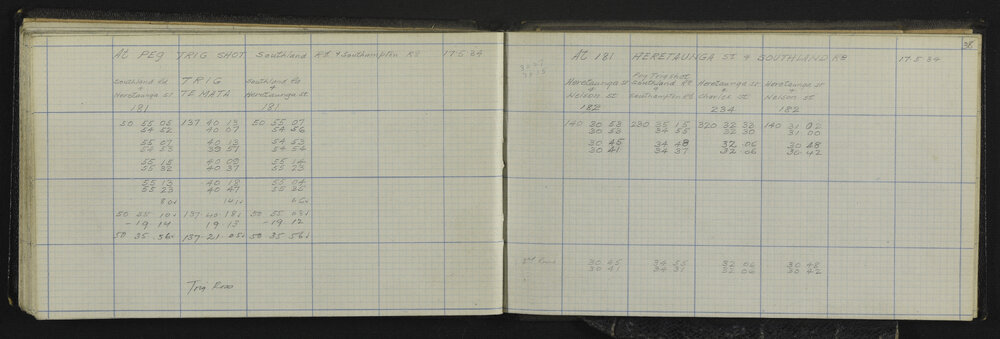 At PEG TRIG SHOT Southland Rd & Southampton Rd 17.5.34
Southland Rd & Heretaunga St 181
TRIG TE MATA
Southland Rd & Heretaunga St 181
50 55 05 137 40 13 50 55 07
54 52 40 07 54 56
55 07 40 13 54 53
54 53 39 57 54 54
55 15 40 09 55 14
55 32 40 37 55 23
55 13 40 18 55 04
55 23 40 47 55 35
80 141 66
50 55 10 137 40 18 50 55 03
-19 14 19 13 -19 12
50 35 56 137 21 05 50 35 56
38
At 181 HERETAUNGA ST & SOUTHLAND RD 17.5.34
Heretaunga St & Nelson St 182
Peg Trig Shot Southland Rd & Southampton Rd
Heretaunga St & St 234
Heretaunga St & Nelson St 182
140 30 53 230 35 15 320 32 32 140 31 02
30 53 34 55 32 30 31 00
30 45 34 48 32 06 30 48
30 41 34 37 32 06 30 42
2nd Round 30 45 34 55 32 06 30 48
30 41 34 37 32 06 30 42